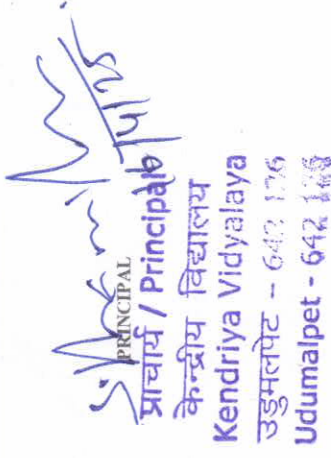 PRINCIPAL
प्राचार्य / Principal
केन्द्रीय विद्यालय
Kendriya Vidyalaya
उडुमलपेट - 642 126
Udumalpet - 642 126